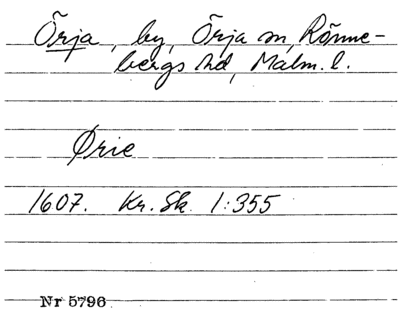 Örja, by, Örja sn, Rönne-
bergs hd, Malm. l.
Ørie
1607. Kr. Sk. 1:355
Nr 5796